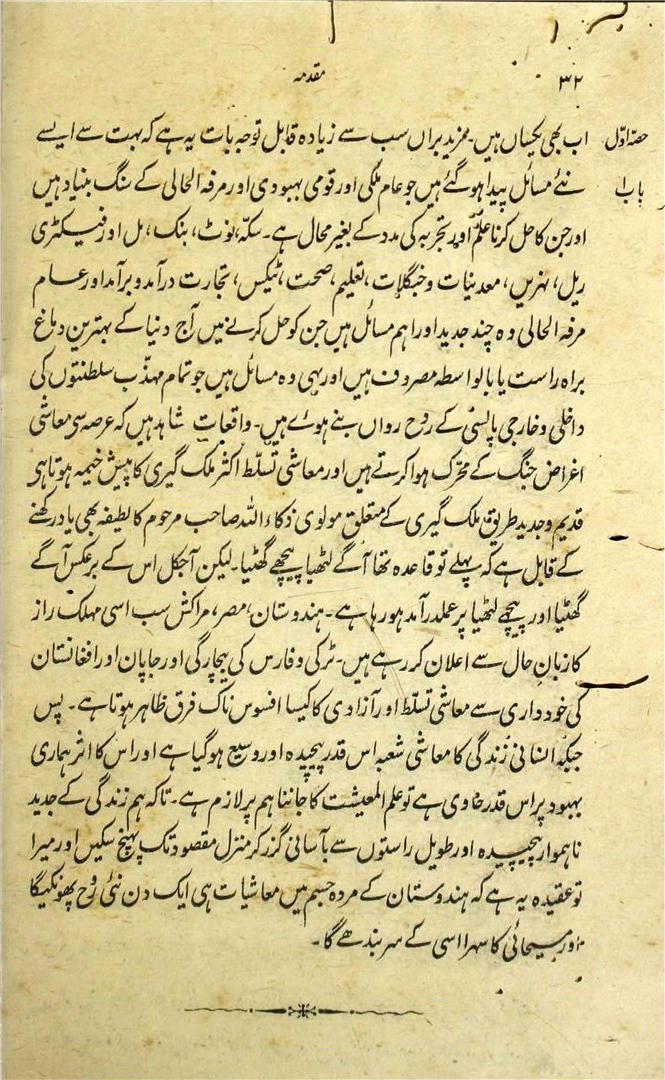 ۳۲
مقدمہ
حصۂ اوّل
باب ا
اب بھی یکساں ہیں۔ مزید براں سب سے زیادہ قابل توجہ بات یہ ہے کہ بہت سے ایسے
نئے مسائل پیدا ہو گئے ہیں جو عام ملکی اور قومی بہبودی اور مرفہ الحالی کے سنگ بنیاد ہیں
اور جن کا حل کرنا علم اور تجربہ کی مدد کے بغیر محال ہے۔ سکہ، نوٹ، بنک، مل اور فیکٹری
ریل، نہریں، معدنیات و جنگلات، تعلیم، صحت، ٹیکس، تجارت درآمد و برآمد اور عام
مرفہ الحالی وہ چند جدید اور اہم مسائل ہیں جن کو حل کرنے میں آج دنیا کے بہترین دماغ
براہ راست یا بالواسطہ مصروف ہیں اور یہی وہ مسائل ہیں جو تمام مہذّب سلطنتوں کی
داخلی و خارجی پالسی کے روح رواں بنے ہوئے ہیں۔ واقعات شاہد ہیں کہ عرصہ سے معاشی
اغراض جنگ کے محرّک ہوا کرتے ہیں اور معاشی تسلّط اکثر ملک گیری کا پیش خیمہ ہوتا ہی
قدیم و جدید طریق ملک گیری کے متعلق مولوی ذکاء اللہ صاحب مرحوم کا لطیفہ بھی یاد رکھنے
کے قابل ہے کہ پہلے تو قاعدہ تھا آگے لٹھیا پیچھے گھٹیا۔ لیکن آجکل اس کے برعکس آگے
گھٹیا اور پیچھے لٹھیا پر عملدرآمد ہو رہا ہے۔ ہندوستان، مصر، مراکش سب اسی مہلک راز
کا زبانِ حال سے اعلان کر رہے ہیں۔ ٹرکی و فارس کی بیچارگی اور جاپان اور افغانستان
کی خودداری سے معاشی تسلّط اور آزادی کا کیسا افسوس ناک فرق ظاہر ہوتا ہے۔ پس
جبکہ انسانی زندگی کا معاشی شعبہ اس قدر پیچیدہ اور وسیع ہو گیا ہے اور اس کا اثر ہماری
بہبود پر اس قدر حاوی ہے تو علم المعیشت کا جاننا ہم پر لازم ہے۔ تاکہ ہم زندگی کے جدید
ناہموار پیچیدہ اور طویل راستوں سے بآسانی گزر کر منزل مقصود تک پہنچ سکیں اور میرا
تو عقیدہ یہ ہے کہ ہندوستان کے مردہ جسم میں معاشیات ہی ایک دن نئی روح پھونکیگا
اور مسیحائی کا سہرا اسی کے سر بندھے گا۔